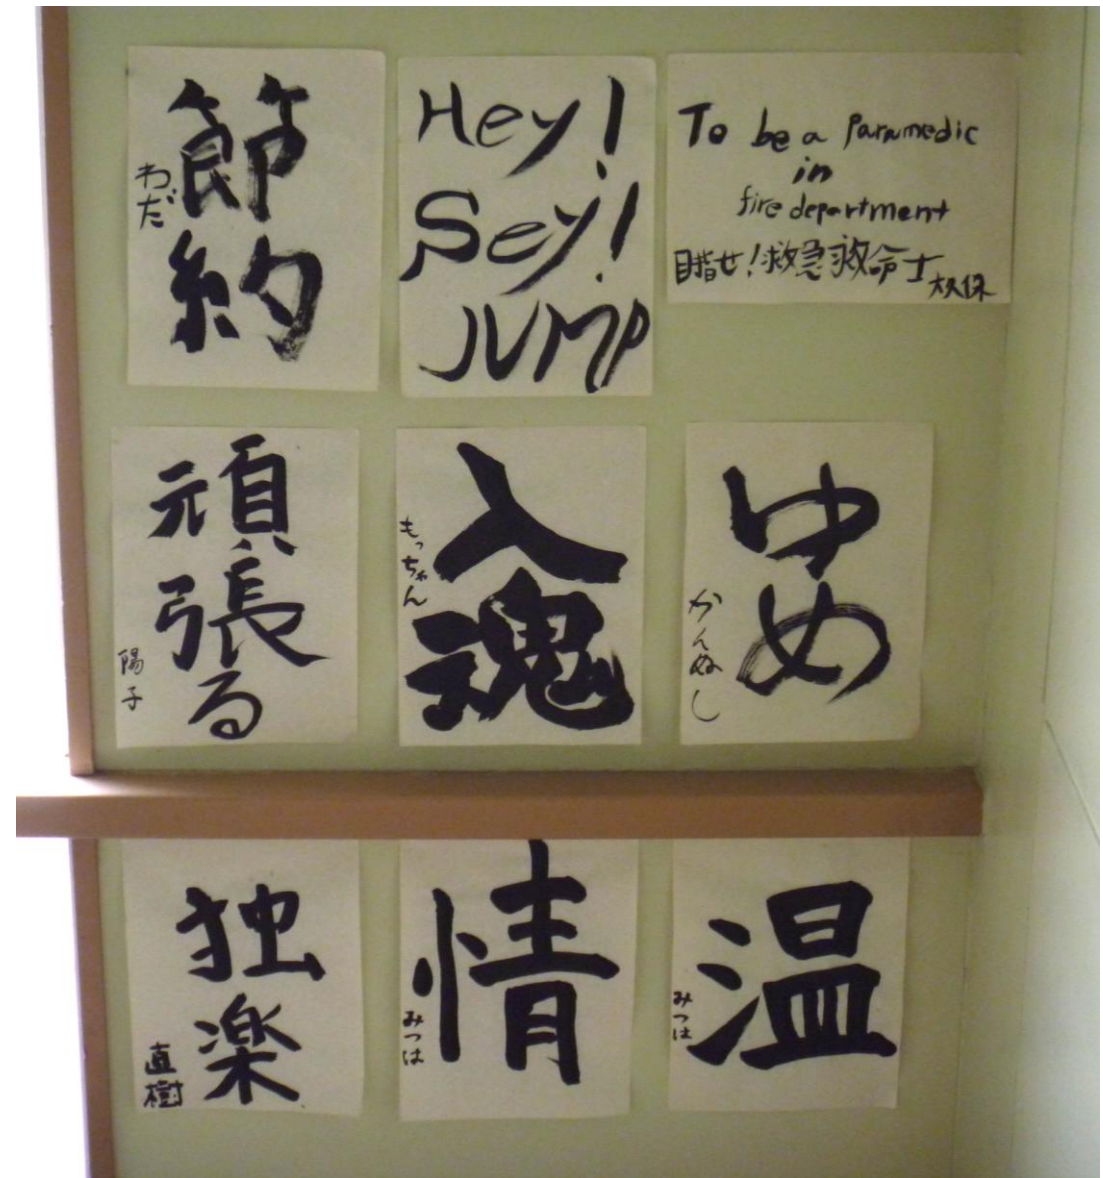 節約
わだ
Hey!
Sey!
JUMP
To be a Paramedic
in
fire department
目指せ!救急救命士
大久保
頑張る
陽子
入魂
もっちゃん
ゆめ
かんぬし
独楽
直樹
情
みつは
温
みつは